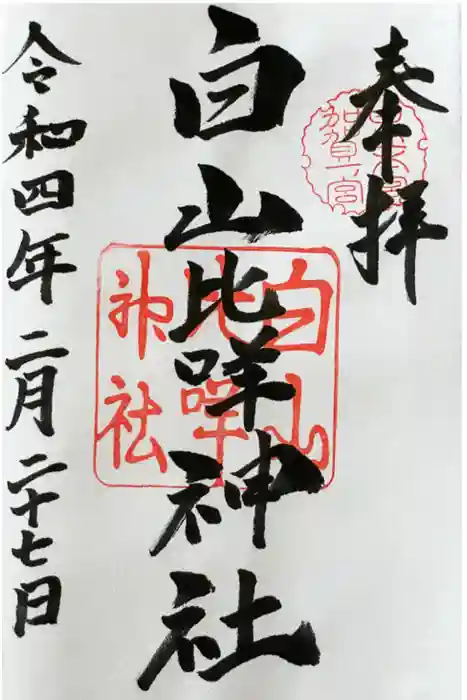 奉拝
白山比咩神社
白山
比咩
神社
令和四年二月二十七日